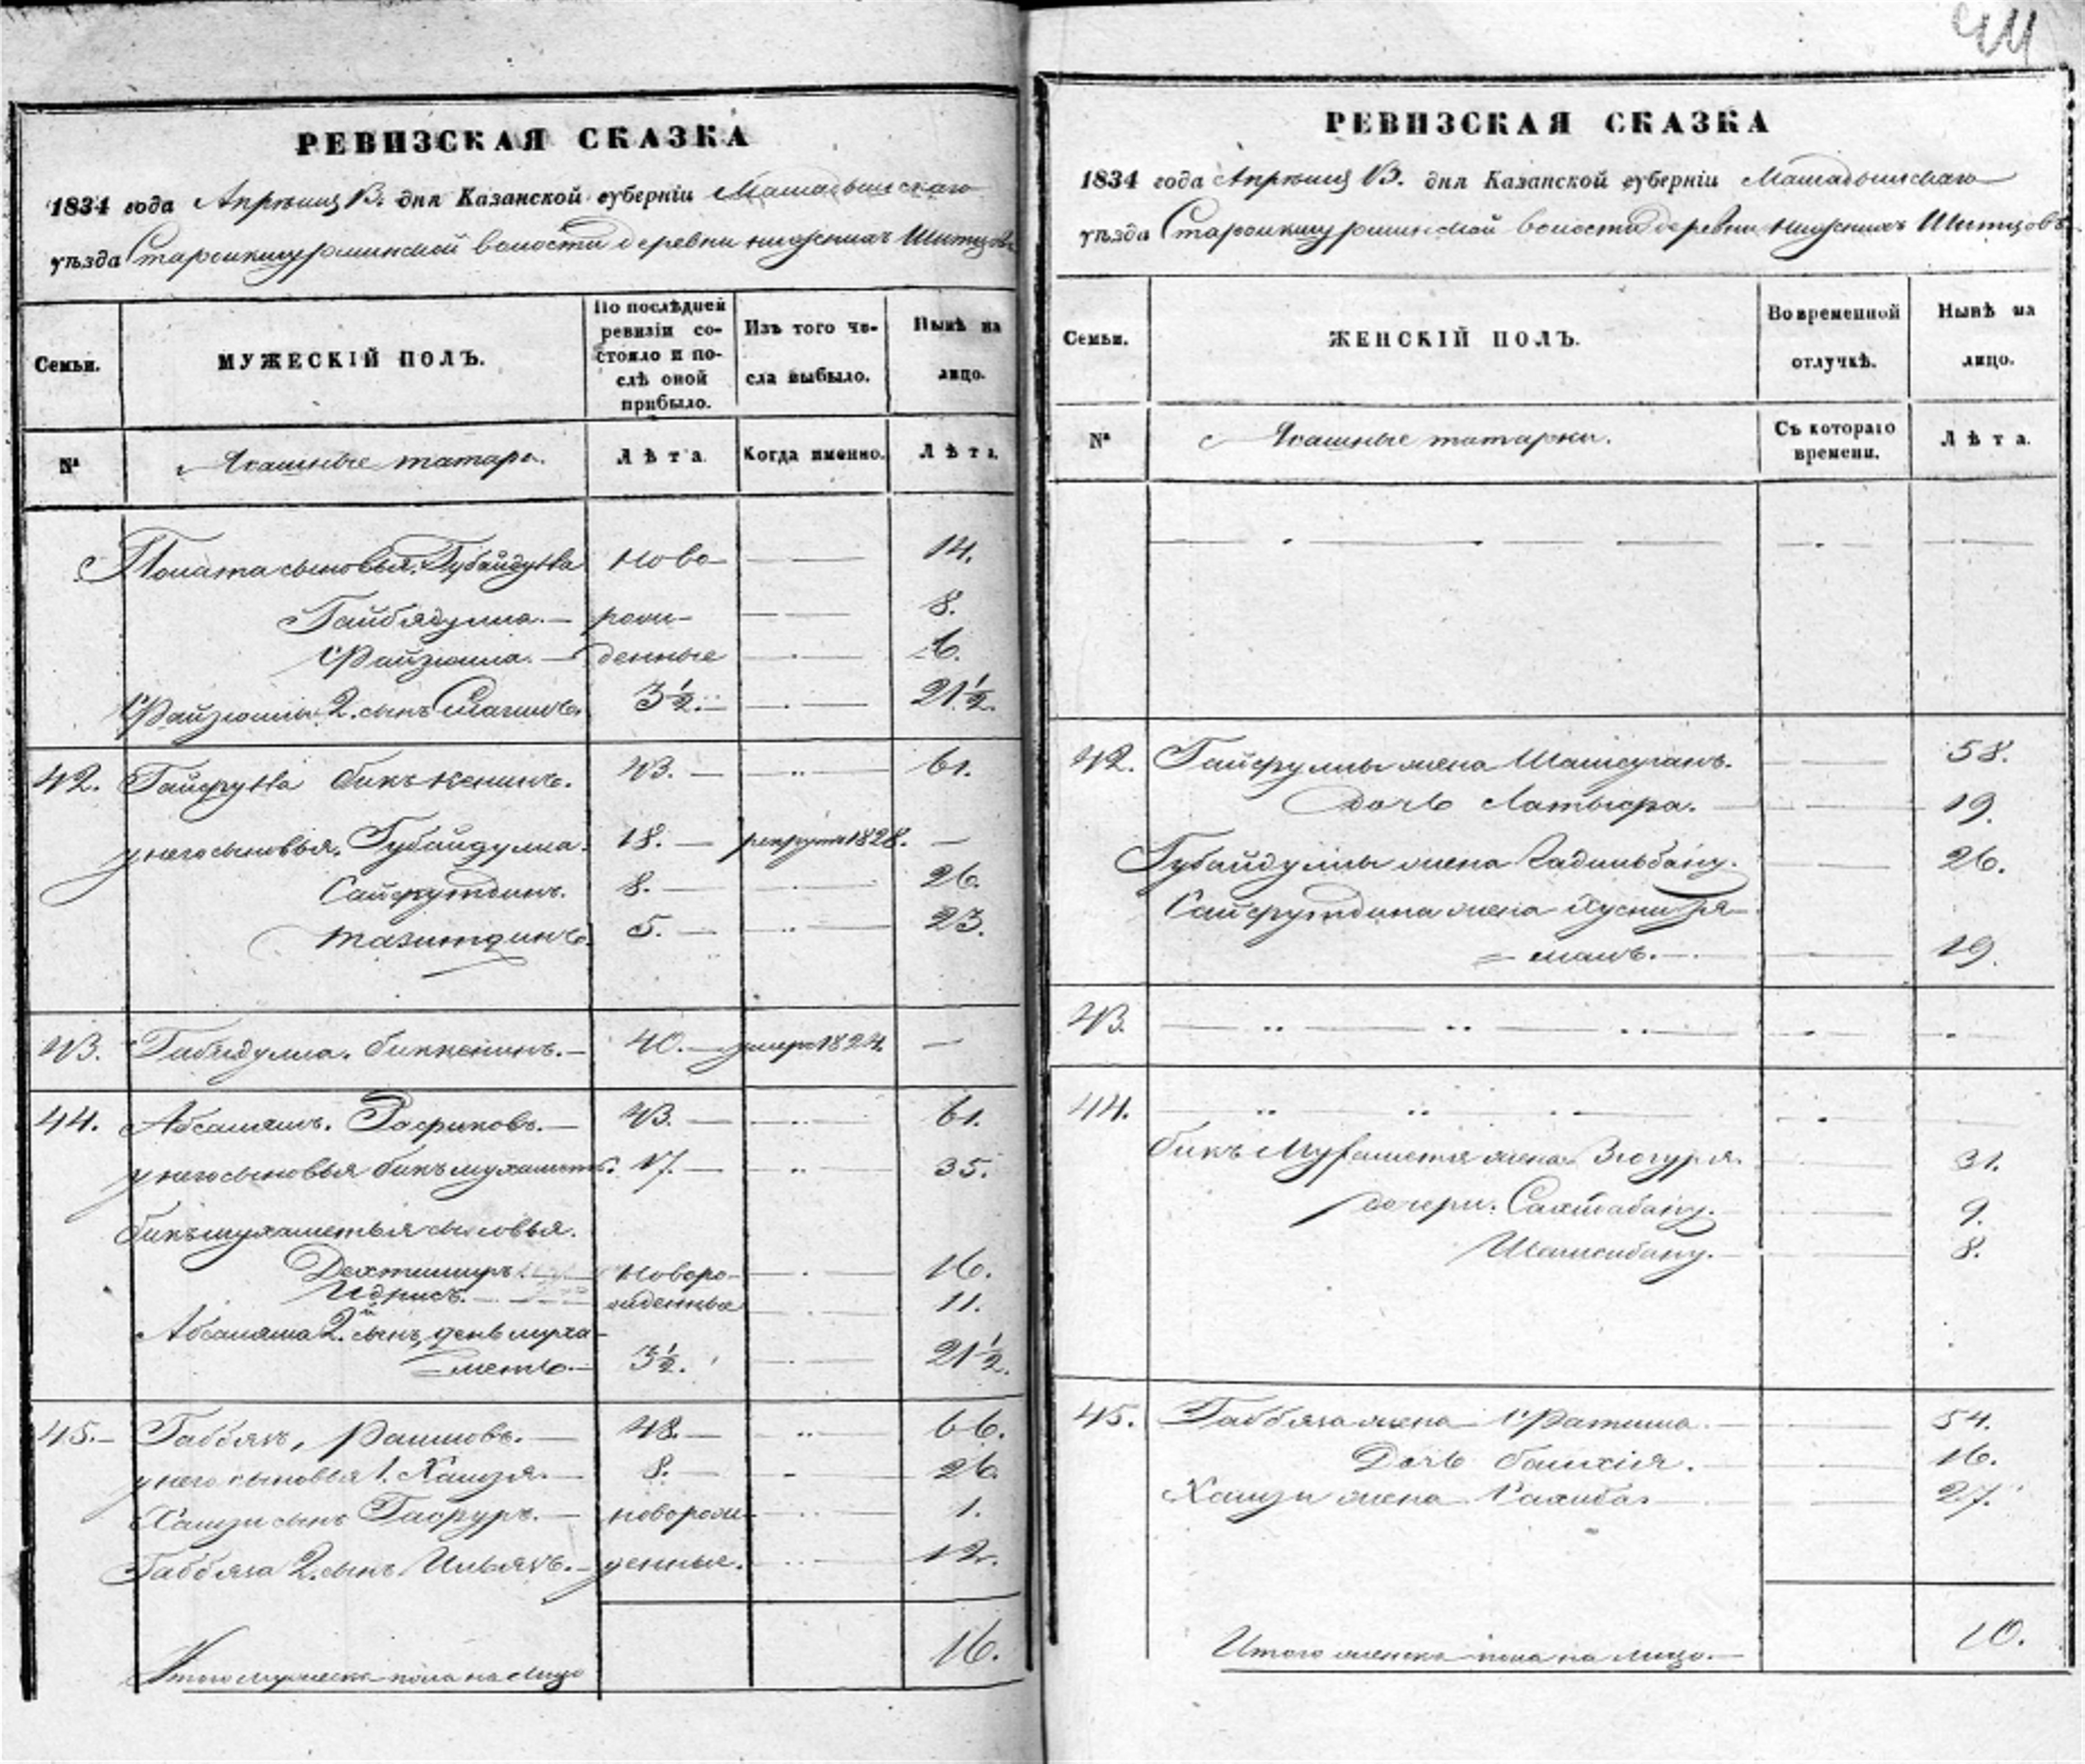 РЕВИЗСКАЯ СКАЗКА
1834 года Апреля 13. дня Казанской губерніи Мамадышскаго
уѣзда Старокишурминской волости деревни нижнихъ Шитцовъ
Семьи.
МУЖЕСКІЙ ПОЛЪ.
По послѣдней ревизіи состояло и послѣ оной прибыло.
Изъ того числа выбыло.
Нынѣ на лицо.
№
Ясашные татара.
Лѣта.
Когда именно.
Лѣта.
сыновья. Губайдулла ново- 14.
Гайбядулла. рожи- 8.
Файзюлла. денные 6.
Файзюллы 2. сынъ 3½. 21½.
42. Гайфулла бикъкенинъ. 43. 61.
у него сыновья. Губайдулла. 18. рекрутъ 1828.
Сайфутдинъ. 8. 26.
Тазитдинъ. 5. 23.
43. Габидулла. биккенинъ. 40. умеръ 1824.
44. Абсалямъ. Рафиковъ. 43. 61.
у него сыновья бикъмухаметъ. 17. 35.
бикъмухаметья сыновья.
Дехтимиръ. Новоро- 16.
Идрисъ. жденные 11.
Абсаляма 2й сынъ, денъмуха-
=метъ. 3½. 21½.
45. Габбясъ, 48. 66.
у него сыновья 1. Хамзя. 8. 26.
Хамзи сынъ Гафуръ. новорож- 1.
Габбяса 2. сынъ Ильясъ. денные. 12.
Итого мужеска пола на лицо 16.
44
РЕВИЗСКАЯ СКАЗКА
1834 года Апреля 13. дня Казанской губерніи Мамадышскаго
уѣзда Старокишурминской волости деревни Нижнихъ Шитцовъ
Семьи.
ЖЕНСКІЙ ПОЛЪ.
Во временной отлучкѣ.
Нынѣ на лицо.
№
Ясашные татарки.
Съ котораго времени.
Лѣта.
42. Гайфуллы жена Шамсуганъ. 58.
Дочь Латыфа. 19.
Губайдуллы жена Гадильбану. 26.
Сайфутдина жена Хусни Зя-
=малъ. 19.
43.
44.
бикъ Мухаметя жена Зюгуря. 31.
дочери. Сахибабану. 9.
Шамсибану. 8.
45. Габбяса жена Фатима. 54.
Дочь 16.
Хамзи жена 27.
Итого женска пола на лицо. 10.